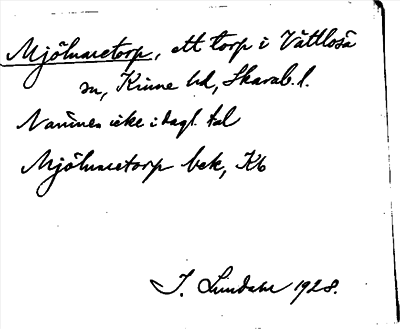 Mjölnaretorp, ett torp i Vättlösa
sn, Kinne hd, Skarab. l.
Namnes icke i dagl. tal
Mjölnaretorp bek, Kb
I. Lundahl 1928.